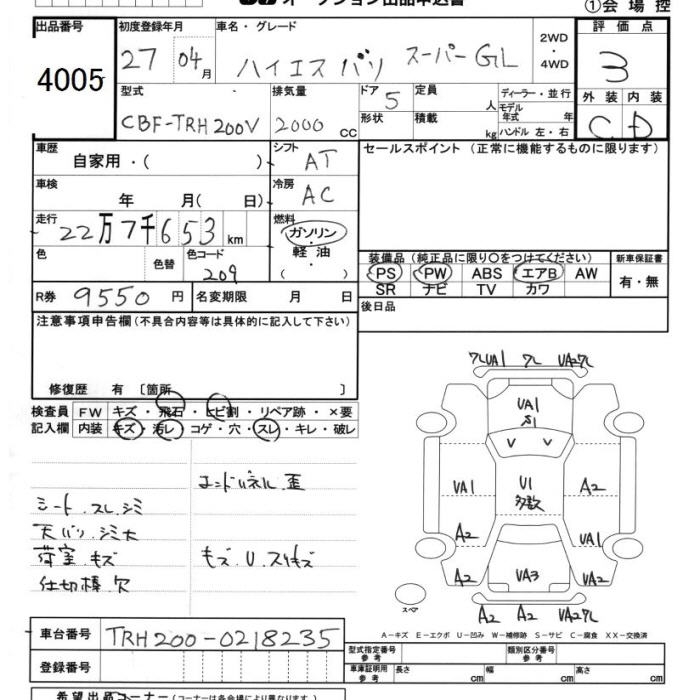 オークション出品申込書
①会場控
出品番号 4005
初度登録年月 27 04月
車名・グレード ハイエス バン スーパーGL
2WD・4WD
評価点 3
外装 内装 C D
型式 CBF-TRH200V
排気量 2000 CC
ドア 5
定員 人
形状
積載 kg
ディーラー・並行
モデル年式 年
ハンドル 左・右
車歴 自家用・( )
シフト AT
セールスポイント(正常に機能するものに限ります)
車検 年 月( 日)
冷房 AC
走行 22万7千653km
燃料 ガソリン・軽油・( )
色 色替
色コード 209
装備品(純正品に限り○をつけてください)
新車保証書 有・無
PS PW ABS エアB AW
SR ナビ TV カワ
R券 9550円
名変期限 月 日
後日品
注意事項申告欄(不具合内容等は具体的に記入して下さい)
修復歴 有 [箇所 ]
検査員記入欄
FW キズ・飛石・ヒビ割・リペア跡・×要
内装 キズ・汚レ・コゲ・穴・スレ・キレ・破レ
エンドパネル.歪
シート.スレ.シミ
天バリ.シミ大
荷室.キズ
モズ.U.スリキズ
仕切棒欠
フレUA1 フレ UA2フレ
UA1
S1
UA1
U1
多数
A2
A2
UA1
A2
UA3
UA2
スペア
A2 A2 UA2フレ
A－キズ E－エクボ U－凹み W－補修跡 S－サビ C－腐食 XX－交換済
車台番号 TRH200-0218235
登録番号
型式指定番号 参考
類別区分番号 参考
車庫証明用 参考 長さ cm 幅 cm 高さ cm
希望出品コーナー(コーナーは各会場により異なります)